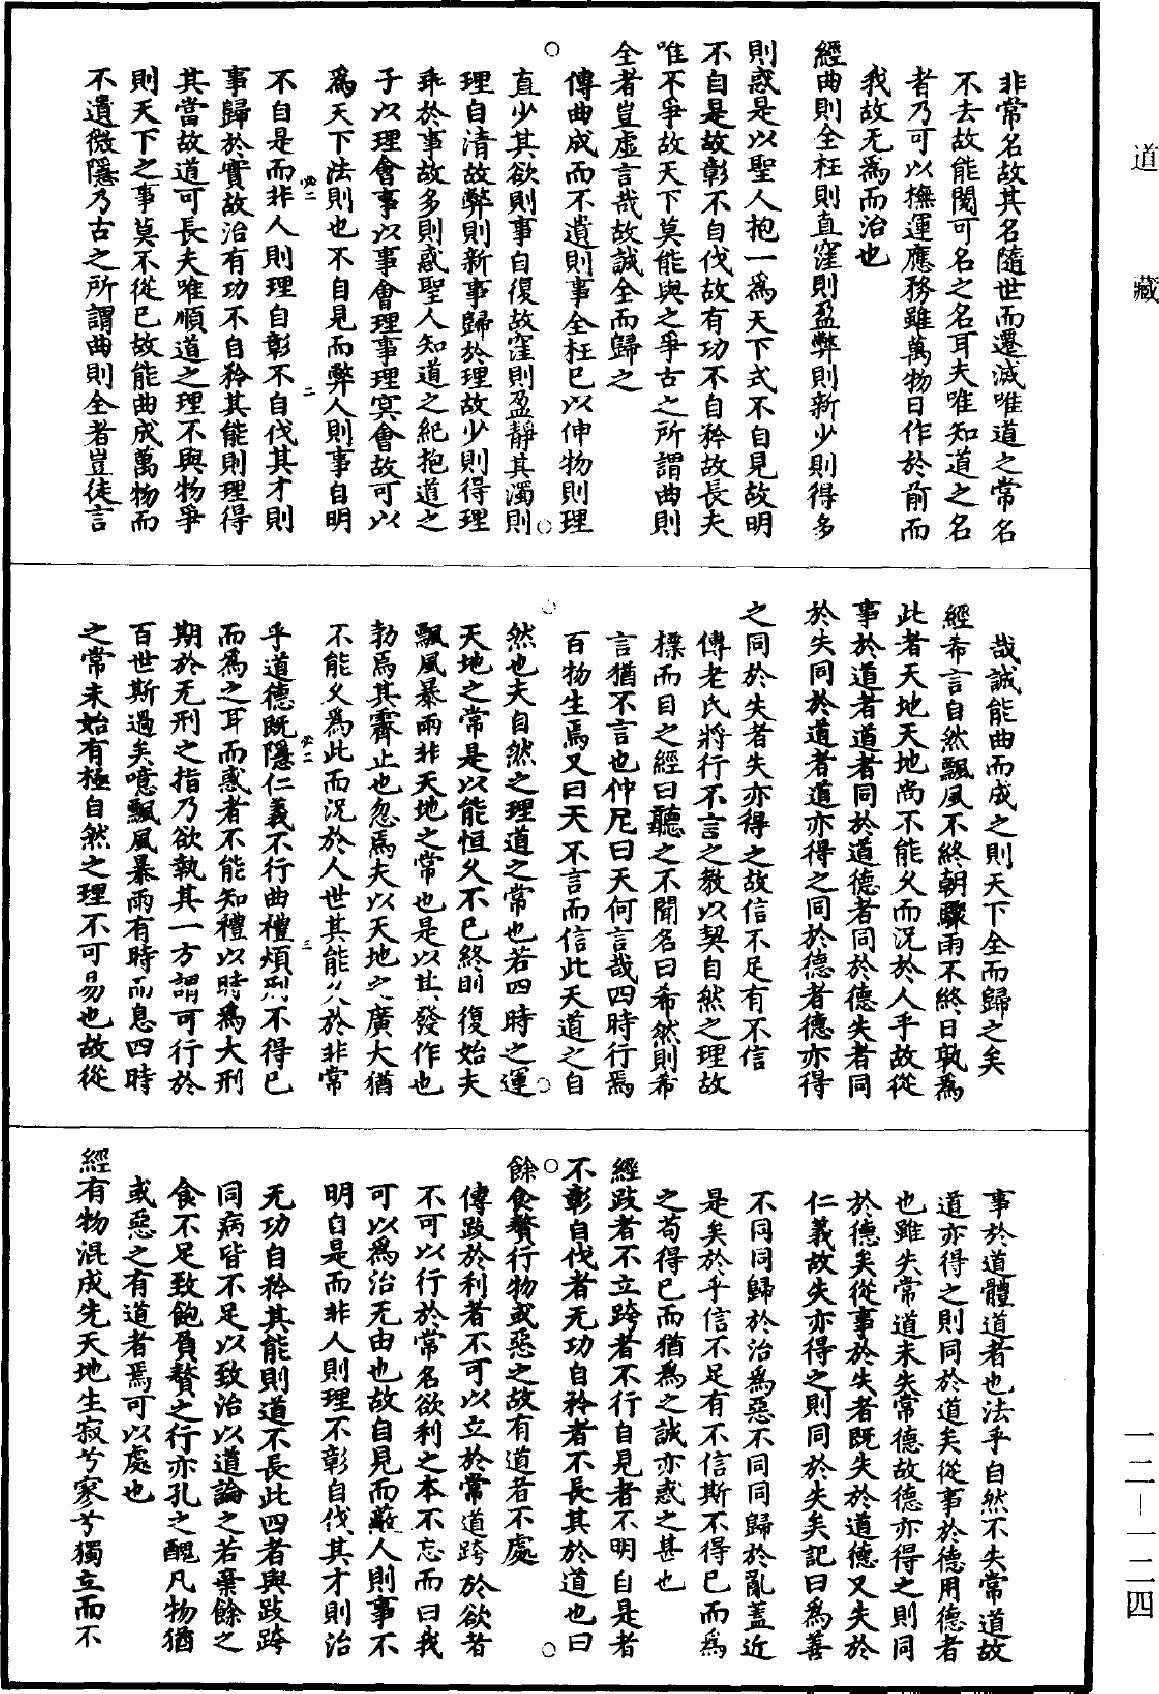 道藏
非常名故其名隨世而遷滅唯道之常名
不去故能閱可名之名耳夫唯知道之名
者乃可以撫運應務雖萬物日作於前而
我故无爲而治也
經曲則全枉則直窪則盈弊則新少則得多
則惑是以聖人抱一爲天下式不自見故明
不自是故彰不自伐故有功不自矜故長夫
唯不爭故天下莫能與之爭古之所謂曲則
全者豈虛言哉故誠全而歸之
傳曲成而不遺則事全枉已以伸物則理
直少其欲則事自復故窪則盈靜其濁則
理自清故弊則新事歸於理故少則得理
乖於事故多則惑聖人知道之紀抱道之
子以理會事以事會理事理冥會故可以
爲天下法則也不自見而弊人則事自明
不自是而非人則理自彰不自伐其才則
事歸於實故治有功不自矜其能則理得
其當故道可長夫唯順道之理不與物爭
則天下之事莫不從已故能曲成萬物而
不遺微隱乃古之所謂曲則全者豈徒言
哉誠能曲而成之則天下全而歸之矣
經希言自然飄風不終朝驟雨不終日孰爲
此者天地天地尚不能久而況於人乎故從
事於道者道者同於道德者同於德失者同
於失同於道者道亦得之同於德者德亦得
之同於失者失亦得之故信不足有不信
傳老氏將行不言之教以契自然之理故
標而目之經曰聽之不聞名曰希然則希
言猶不言也仲尼曰天何言哉四時行焉
百物生焉又曰天不言而信此天道之自
然也夫自然之理道之常也若四時之運
天地之常是以能恒久不已終則復始夫
飄風暴雨非天地之常也是以其發作也
勃焉其霽止也忽焉夫以天地之廣大猶
不能久爲此而況於人世其能久於非常
乎道德既隱仁義不行曲禮煩刑不得已
而爲之耳而惑者不能知禮以時爲大刑
期於无刑之指乃欲執其一方謂可行於
百世斯過矣噫飄風暴雨有時而息四時
之常未始有極自然之理不可易也故從
事於道體道者也法乎自然不失常道故
道亦得之則同於道矣從事於德用德者
也雖失常道未失常德故德亦得之則同
於德矣從事於失者既失於道德又失於
仁義故失亦得之則同於失矣記曰爲善
不同同歸於治爲惡不同同歸於亂蓋近
是矣於乎信不足有不信斯不得已而爲
之苟得已而猶爲之誠亦惑之甚也
經跂者不立跨者不行自見者不明自是者
不彰自伐者无功自矜者不長其於道也曰
餘食贅行物或惡之故有道者不處
傳跂於利者不可以立於常道跨於欲者
不可以行於常名欲利之本不忘而曰我
可以爲治无由也故自見而蔽人則事不
明自是而非人則理不彰自伐其才則治
无功自矜其能則道不長此四者與跂跨
同病皆不足以致治以道論之若棄餘之
食不足致飽負贅之行亦孔之醜凡物猶
或惡之有道者焉可以處也
經有物混成先天地生寂兮寥兮獨立而不
一二—一二四